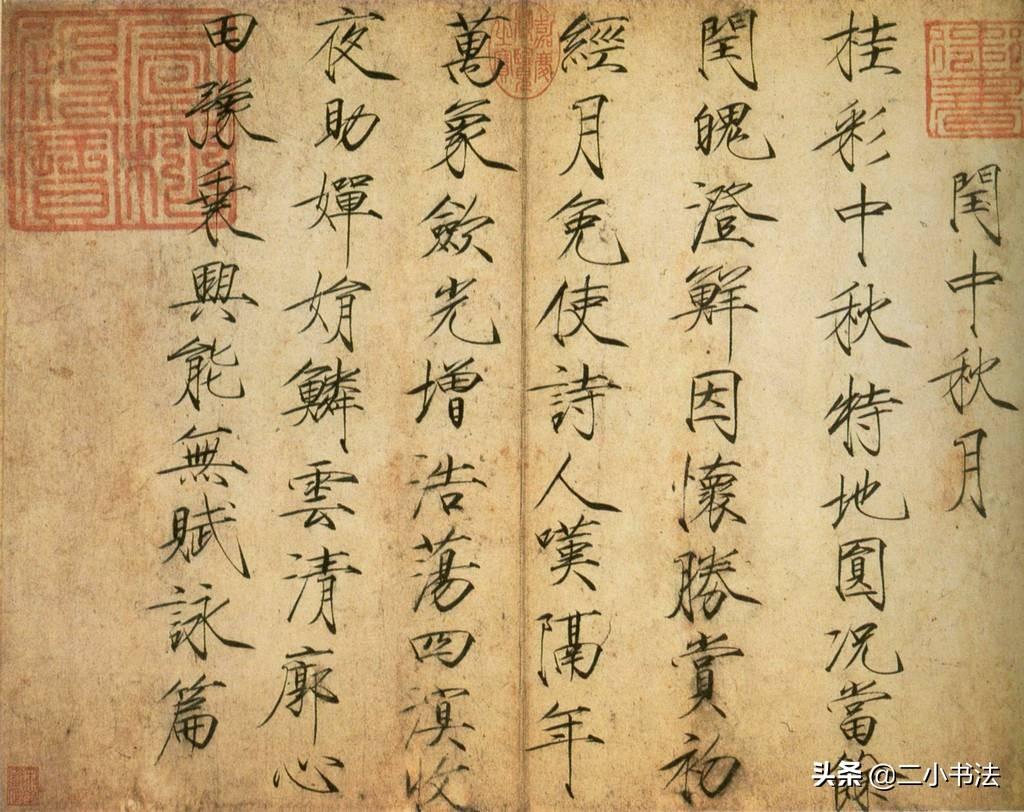 閏中秋月
桂彩中秋特地圓況當餘
閏魄澄鮮因懷勝賞初
經月免使詩人嘆隔年
萬象歛光增浩蕩四溟收
夜助嬋娟鱗雲清廓心
田豫乗興能無賦詠篇
头条 @二小书法